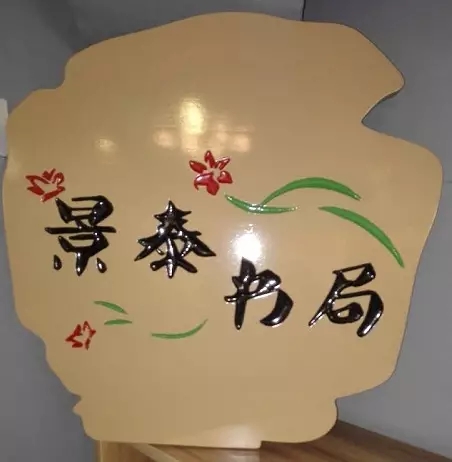 景泰
书局